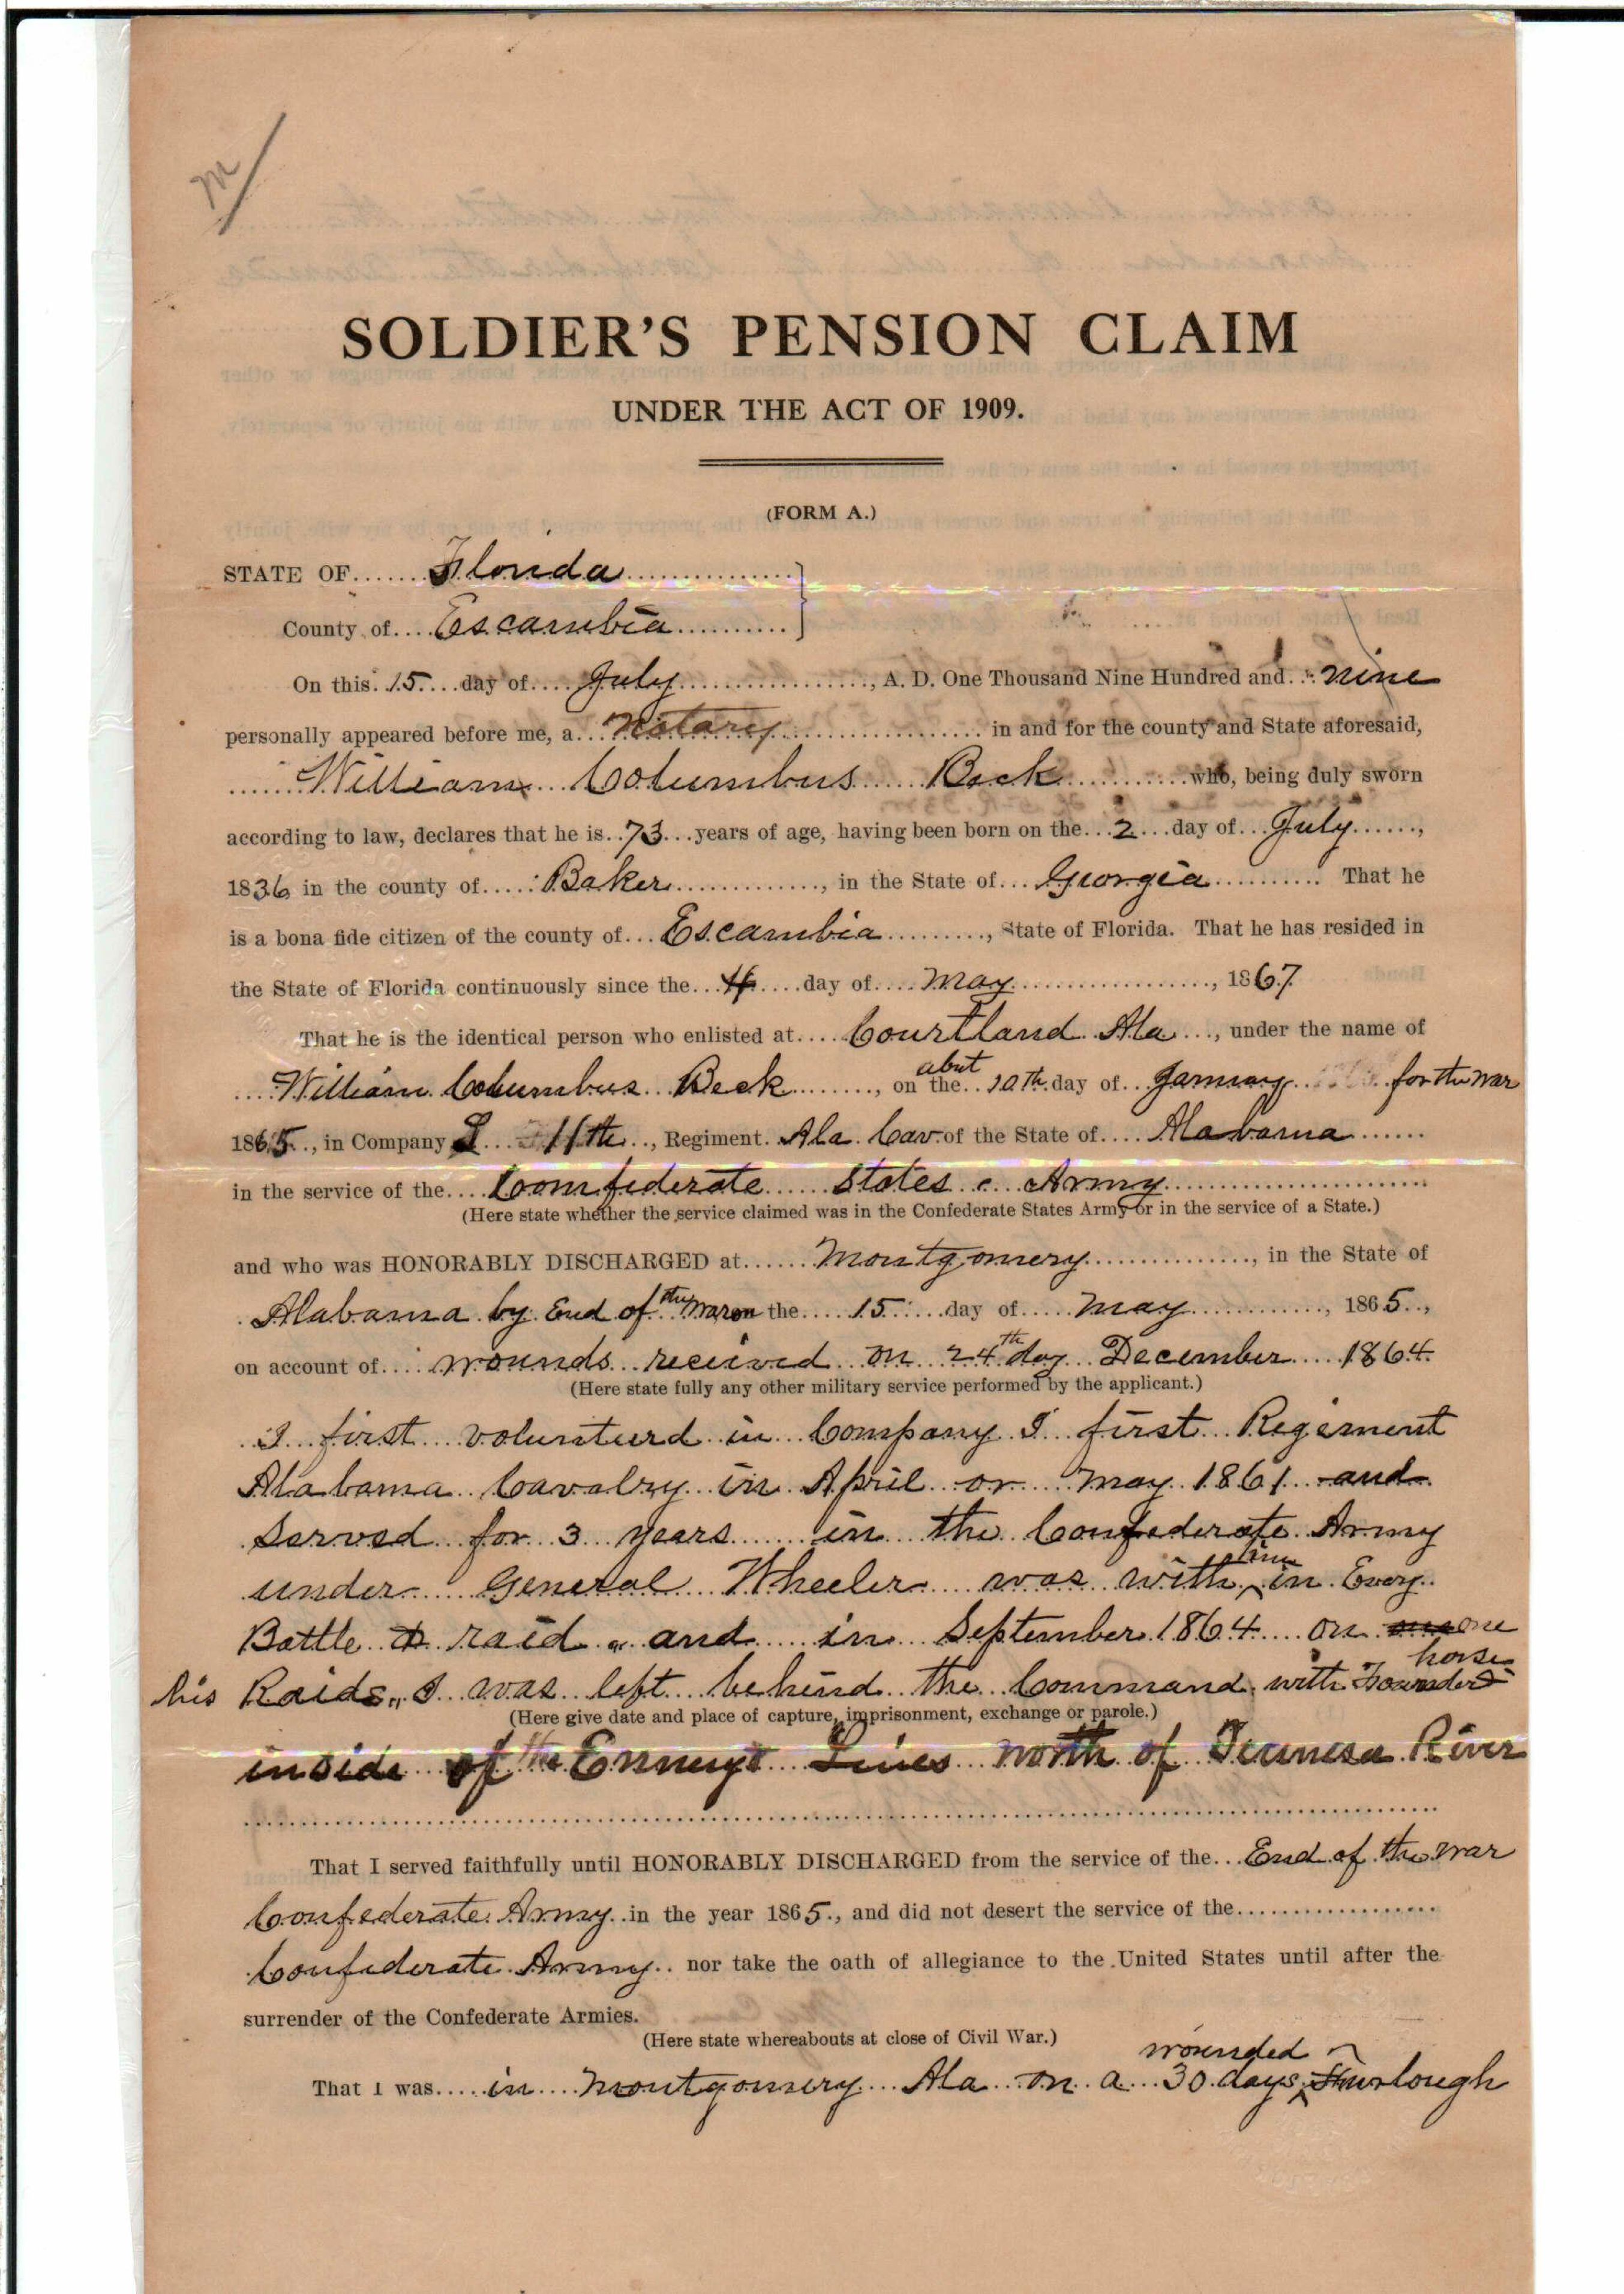 M
SOLDIER'S PENSION CLAIM
UNDER THE ACT OF 1909.
(FORM A.)
STATE OF Florida
County of Escambia
On this 15 day of July, A. D. One Thousand Nine Hundred and nine
personally appeared before me, a Notary in and for the county and State aforesaid,
William Columbus Beck who, being duly sworn
according to law, declares that he is 73 years of age, having been born on the 2 day of July,
1836 in the county of Baker, in the State of Georgia That he
is a bona fide citizen of the county of Escambia, State of Florida. That he has resided in
the State of Florida continuously since the 4 day of May, 1867
That he is the identical person who enlisted at Courtland Ala, under the name of
William Columbus Beck, on about the 10th day of January for the war
1865, in Company 11th, Regiment Ala Cav of the State of Alabama
in the service of the Comfederate States Army
(Here state whether the service claimed was in the Confederate States Army or in the service of a State.)
and who was HONORABLY DISCHARGED at Montgomery, in the State of
Alabama by End of the War on the 15 day of May, 1865,
on account of wounds received on 24th day December 1864
(Here state fully any other military service performed by the applicant.)
I first volunteerd in Company I first Regement
Alabama Cavalry in April or May 1861 and
Served for 3 years in the Confederate Army
under General Wheeler was with him in Every
Battle & raid and in September 1864 on one
his Raids, I was left behind the Command with horse
(Here give date and place of capture, imprisonment, exchange or parole.)
inside of the Ennemys Lines north of Tennesa River
That I served faithfully until HONORABLY DISCHARGED from the service of the End of the war
Confederate Army in the year 1865, and did not desert the service of the
Confederate Army nor take the oath of allegiance to the United States until after the
surrender of the Confederate Armies.
(Here state whereabouts at close of Civil War.)
That I was in Montgomery Ala on a 30 days wounded Furlough